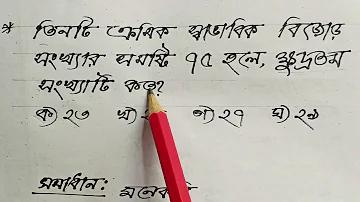 * তিনটি ক্রমিক স্বাভাবিক বিজোড়
সংখ্যার সমষ্টি ৭৫ হলে, ক্ষুদ্রতম
সংখ্যাটি কত?
ক) ২৩ খ) গ) ২৭ ঘ) ২৯
সমাধান: